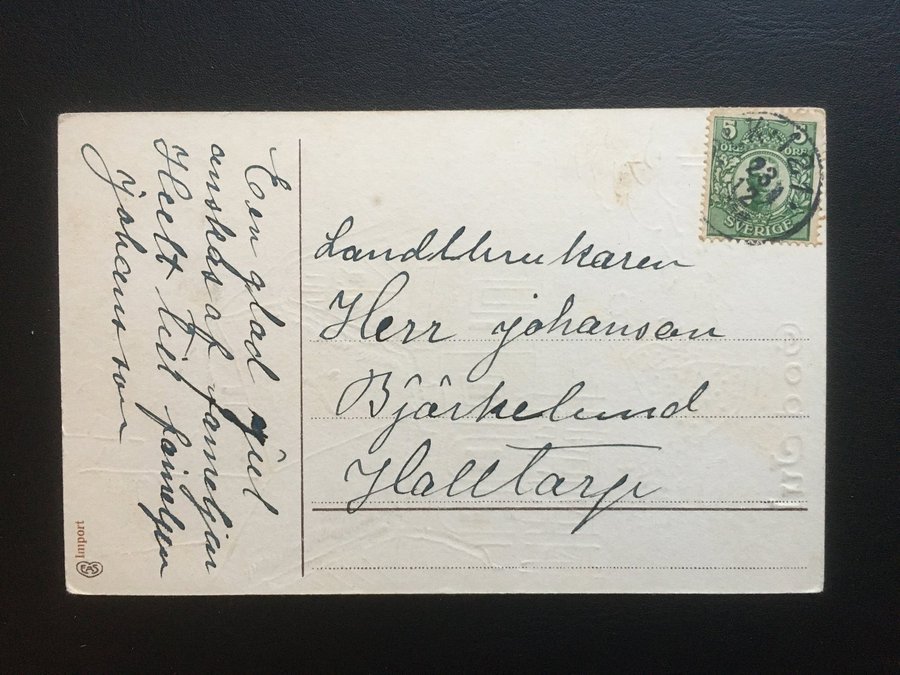 En glad jul
önskas af familjen
Helt till familjen
johansson
Landtbrukaren
Herr johanson
Björkelund
Halltarp
5 5
ÖRE ÖRE
SVERIGE
23
12
EAS
Import